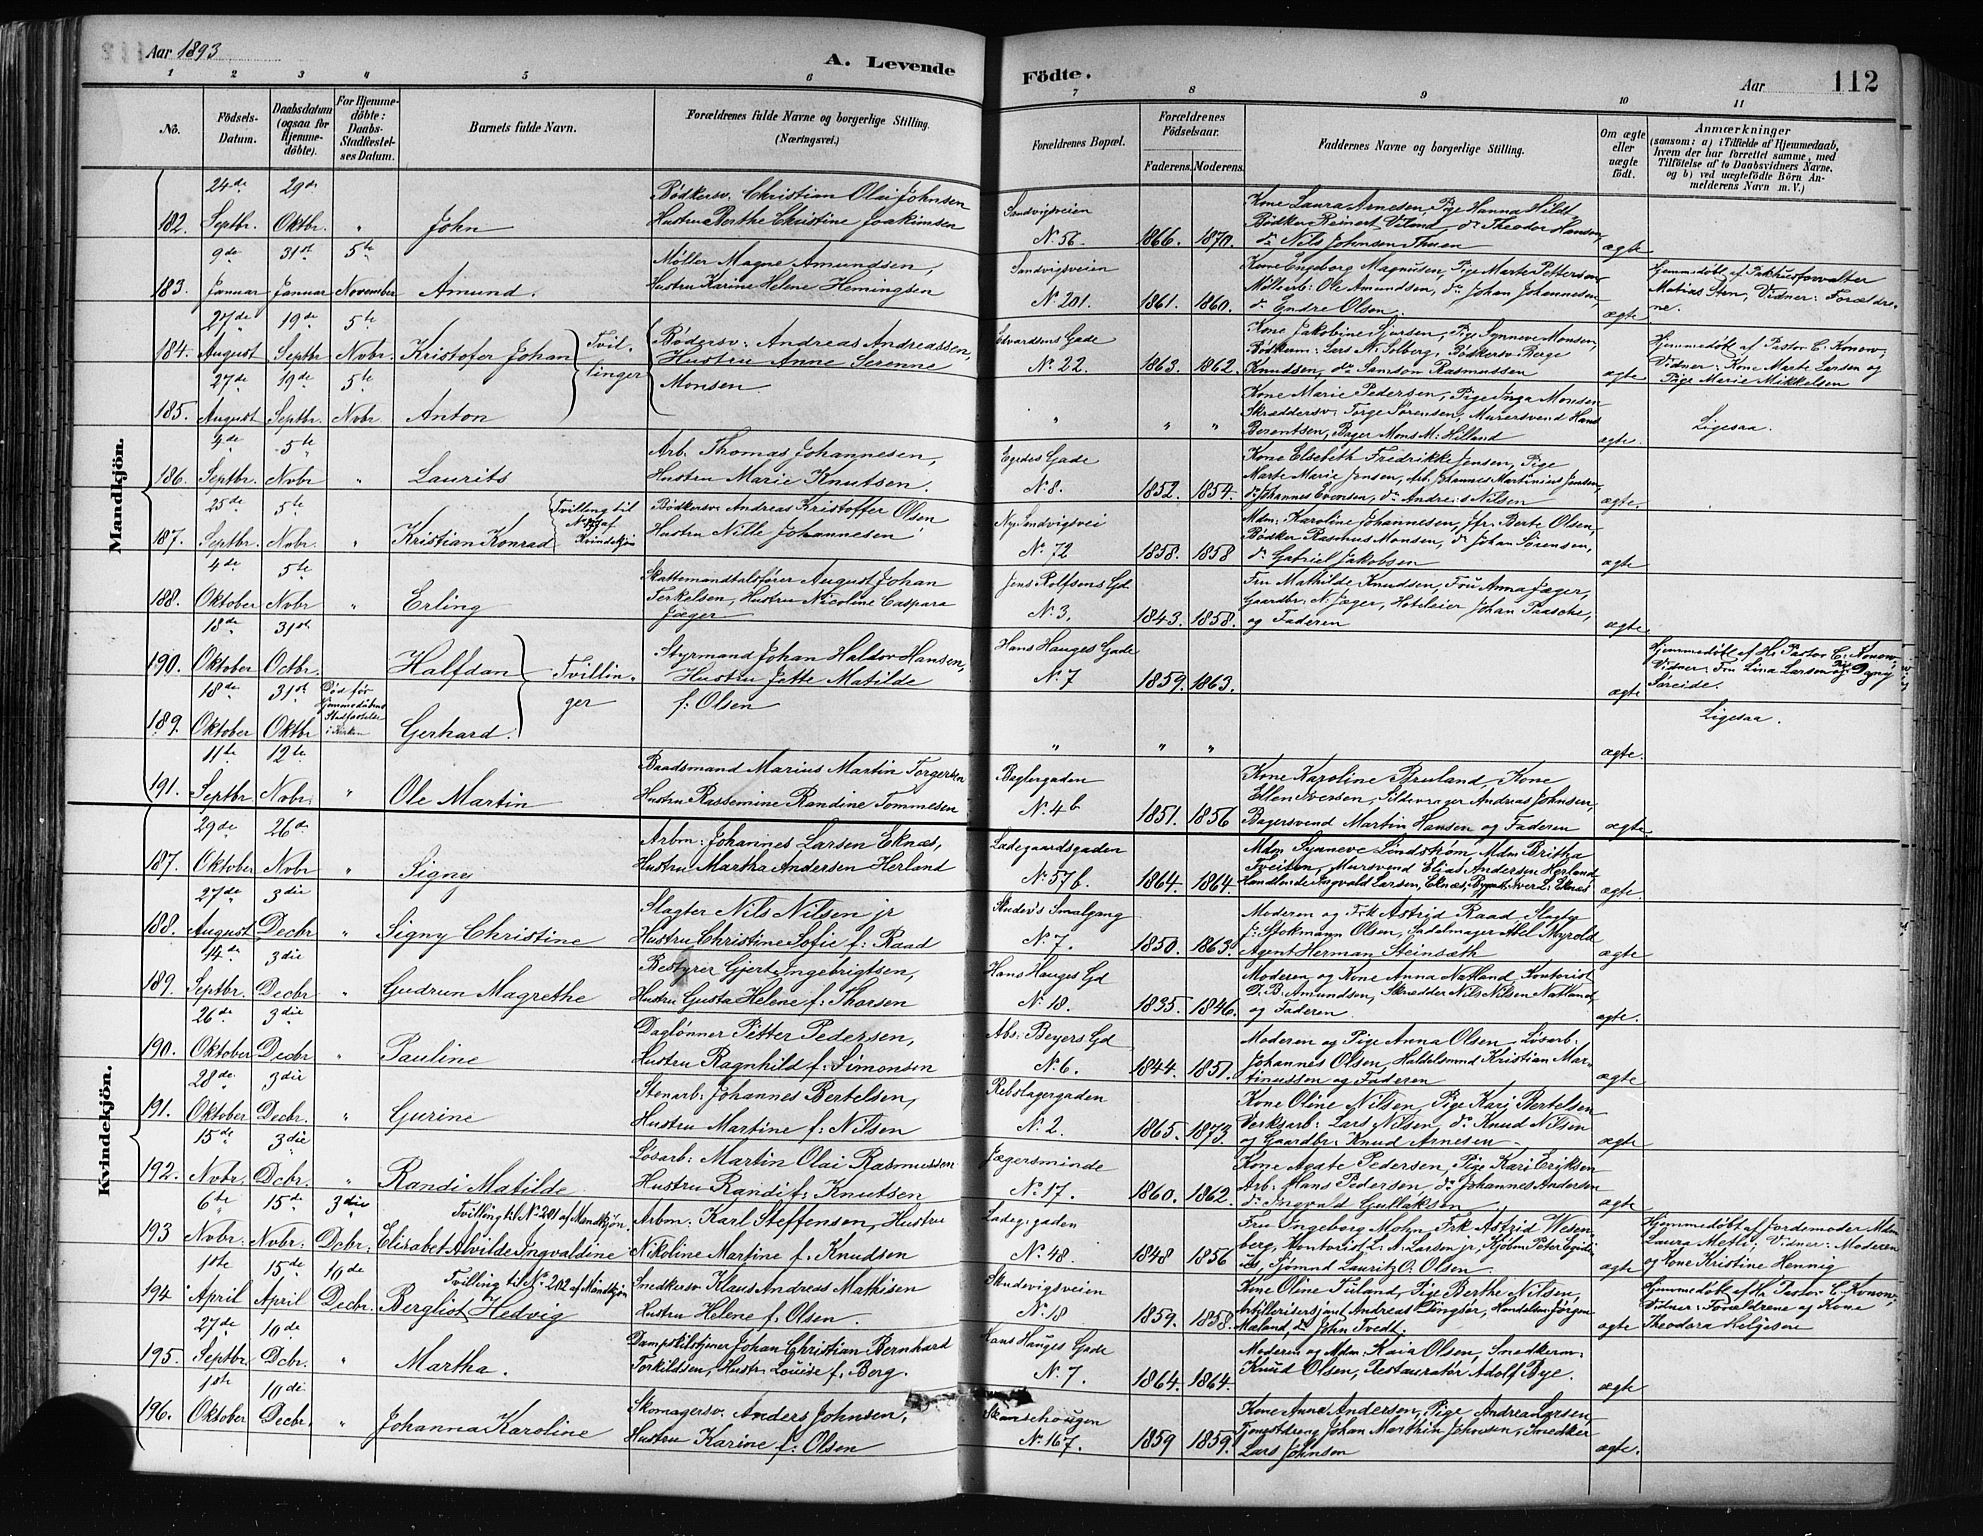 Aar 1893
A. Levende
Födte.
Aar
112
1 2 3 4 5 6 7 8 9 10 11
No.
Födsels-
Datum.
Daabsdatum
(ogsaa for
Hjemme-
döbte).
For Hjemme-
döbte:
Daabs-
Stadfæstel-
ses Datum.
Barnets fulde Navn.
Forældrenes fulde Navne og borgerlige Stilling.
(Næringsvei.)
Forældrenes Bopæl.
Forældrenes
Födselsaar.
Faderens. Moderens.
Faddernes Navne og borgerlige Stilling.
Om ægte
eller
uægte
födt.
Anmærkninger
(saasom: a) i Tilfælde af Hjemmedaab,
hvem der har forrettet samme, med
Tilföielse af to Daabsvidners Navne,
og b) ved uægtefödte Börn An-
melderens Navn m. V.)
Mandkjön.
24de 29de
182. Septbr. Oktbr. " John
Bødkersv. Christian Olai Johnsen
Hustru Berthe Christine Joakimsen
Sandvigsveien
No. 56. 1866. 1870.
Kone Laura Arnesen, Pige Hanna Hildt,
Bødker Reinert Viland, do Theodor Hansen,
do Nils Johnsen Thuen
ægte
9de 31st 5te
183. Januar Januar November Amund.
Møller Magne Amundsen,
Hustru Karine Helene Hemingsen
Sandvigsveien
No 201. 1861. 1860.
Kone Engeborg Magnusen, Pige Marte Pettersen
Møllerarb: Ole Amundsen, do Johan Johannesen,
do Endre Olsen
ægte
Hjemmedøbt af Pakhusforvalter
Matias Sten, Vidner: Forældre-
ne.
27de 19de 5te
184. August Septbr Novbr. Kristofer Johan Tvil-
linger
Bødersv: Andreas Andreassen,
Hustru Anne Serenne
Monsen
Edvardsens Gade
No. 22. 1863. 1862.
Kone Jakobine Sjursen, Pige Synneve Monsen,
Bødkerm: Lars N. Solberg, Bødkersv. Berge
Knudsen, do Samson Rasmussen
ægte
Hjemmedøbt af Pastor C. Konow,
Vidner: Kone Marte Larsen og
Pige Marie Mikkelsen
27de 19de 5te
185. August Septbr. Novbr Anton
" " "
Kone Marie Pedersen, Pige Inga Monsen
Skræddersv. Torge Sørensen, Murersvend Hans
Berentsen, Bager Mons M: Hilland
ægte.
Ligesaa.
4de 5te
186. Septbr. Novbr " Laurits
Arb. Thomas Johannesen,
Hustru Marie Knutsen.
Egedes Gade
No 8. 1852. 1854.
Kone Elsebeth Fredrikke Jensen, Pige
Marte Marie Jensen, Arb. Johannes Martinius Jensen,
do Johannes Evertsen, do Andreas Nilsen
ægte.
25de 5te
187. Septbr. Novbr. " Kristian Konrad
Tvilling til
No af
Kvindekjön
Bødkersv. Andreas Kristoffer Olsen
Hustru Nille Johannesen
Ny Sandvigsvei
No. 72 1858. 1858
Mdm: Karoline Johannesen, Jfr: Berte Olsen,
Bødker Rasmus Monsen, do Johan Sørensen,
do Gabriel Jakobsen
ægte
4de 5te
188. Oktober Novbr " Erling
Skattemandtalsfører August Johan
Terkelsen, Hustru Nicoline Caspara
Jæger
Jens Rolfsens Gd
No 3, 1843. 1858.
Fru Mathilde Knudsen, Fru Anna Jæger,
Gaardbr. N. Jæger, Hoteleier Johan Paasche,
og Faderen
ægte
18de 31st
190. Oktober Octbr. Halfdan Tvillin-
ger
Styrmand Johan Haldor Hansen,
Hustru Jette Matilde
f: Olsen
Hans Hauges Gade
No 7 1859. 1863.
ægte
Hjemmedøbt af Hr Pastor C. Konow
Vidner: Fru Lina Larsen og Pige Dagny
Søreide.
18de 31st
189. Oktober Oktbr
Død før
Hjemmedaabens
Stadfæstelse
i Kirken
Gerhard.
" " "
ægte.
Ligesaa.
11te 12te
191. Septbr Novbr. " Ole Martin
Baadsmand Marius Martin Torgersen
Hustru Rassemine Randine Tommesen
Baglergaden
No. 4b 1851. 1856
Kone Karoline Bruland, Kone
Ellen Iversen, Sildevrager Andreas Johnsen,
Bagersvend Martin Hansen og Faderen
ægte
Kvindekjön.
29de 26de
187. Oktober Novbr " Signy
Arbm: Johannes Larsen Eknæs,
Hustru Martha Andersen Herland
Ladegaardsgaden
No. 57b. 1864. 1864.
Mdm Synneve Lindstrøm, Mdm Britha
Tveiten, Mursvend Elias Andersen Herland
Handlende Ingvald Larsen Eknæs, Iver L. Eknæs
ægte.
27de 3die
188. August Decbr. " Signy Christine
Slagter Nils Nilsen jr
Hustru Christine Sofie f: Raad
Smalgang
No. 7. 1850. 1863.
Moderen og Frk Astrid Raad, Slagter
J: Stokmann Olsen, Sadelmager Abel Myrold
Agent Herman Steinsæth
ægte
14de 3die
189. Septbr. Decbr " Gudrun Magrethe
Bestyrer Gjert Ingebrigtsen,
Hustru Gusta Helene f: Thorsen
Hans Hauges Gd
No. 18. 1835. 1846.
Moderen og Kone Anna Natland, Kontorist
D. B. Amundsen, Skrædder Nils Nilsen Natland,
og Faderen
ægte.
26de 3die
190. Oktober Decbr " Pauline
Daglønner Petter Pedersen,
Hustru Ragnhild f: Simonsen
Abs: Beyers Gd
No. 6. 1844. 1851.
Moderen og Pige Anna Olsen, Løsarb:
Johannes Olsen, Haldelsmnd Kristian Mar-
tinussen og Faderen
ægte
28de 3die
191. Oktober Decbr. " Gurine
Stenarb: Johannes Bertelsen,
Hustru Martine f: Nilsen
Rebslagergaden
No. 2. 1865. 1873.
Kone Oline Nilsen, Pige Kari Bertelsen
Værksarb: Lars Nilsen, do Knud Nilsen
og Gaardbr: Knud Arnesen
ægte
15de 3die
192. Novbr. Dcbr. " Randi Matilde
Løsarb: Martin Olai Rasmussen
Hustru Randi f: Knutsen
Jægersminde
No. 17. 1860. 1862.
Kone Agate Pedersen, Pige Kari Eriksen
Arb: Hans Pedersen, do Johannes Andersen
do Ingvald Gullaksen
ægte
6te 15de 3die
193 Novbr. Novbr. Dcbr. Elisabet Alvilde Ingvaldine
Tvilling til No 201 af Mandkjön.
Arbm: Karl Steffensen, Hustru
Nikoline Martine f. Knudsen
Ladeg:gaden
No. 48. 1848 1856
Fru Ingeborg Mohn, Frk Astrid Wesen
berg, Kontorist L. A. Larsen jr, Sjømnd Lauritz O. Olsen.
ægte
Hjemmedøbt af Jordemoder Mdm
Laura Metli, Vidner: Moderen
og Kone Kristine Hennig
10te 15de 10de
194. April April Decbr. Bergliot Hedvig
Tvilling til No. 202 af Mandkjön
Smedkersv Klaus Andreas Mathisen
Hustru Helene f: Olsen.
Sandvigsveien
No. 18 1859. 1858.
Kone Oline Tuland, Pige Berthe Nilsen,
Artillerisersjant Andreas Dingsør, Handelsm: Jørgen
Mæland, do John Tvedt.
ægte
Hjemmedøbt af Hr Pastor C. Konow,
Vidner: Forældrene og Kone
Theodora Helgesen
27de 10de
195. Septbr. Dcbr. " Martha.
Johan Christian Bernhard
Torkildsen, Hustr. Louise f. Berg.
Hans Hauges Gade
No. 7. 1864. 1864.
Moderen og Mdm: Kaia Olsen, Smedkerm:
Knud Olsen, Restauratør Adolf Bye.
ægte
1ste 10de
196. Oktober Decbr. " Johanna Karoline
Skomagersv. Anders Johnsen,
Hustru Karine f: Olsen
Skansehougen
No. 167. 1859 1859.
Kone Anna Andersen, Pige Andrea Larsen,
Tjenestdreng Johan Marthin Johnsen, Smedker
Lars Johnson
ægte.